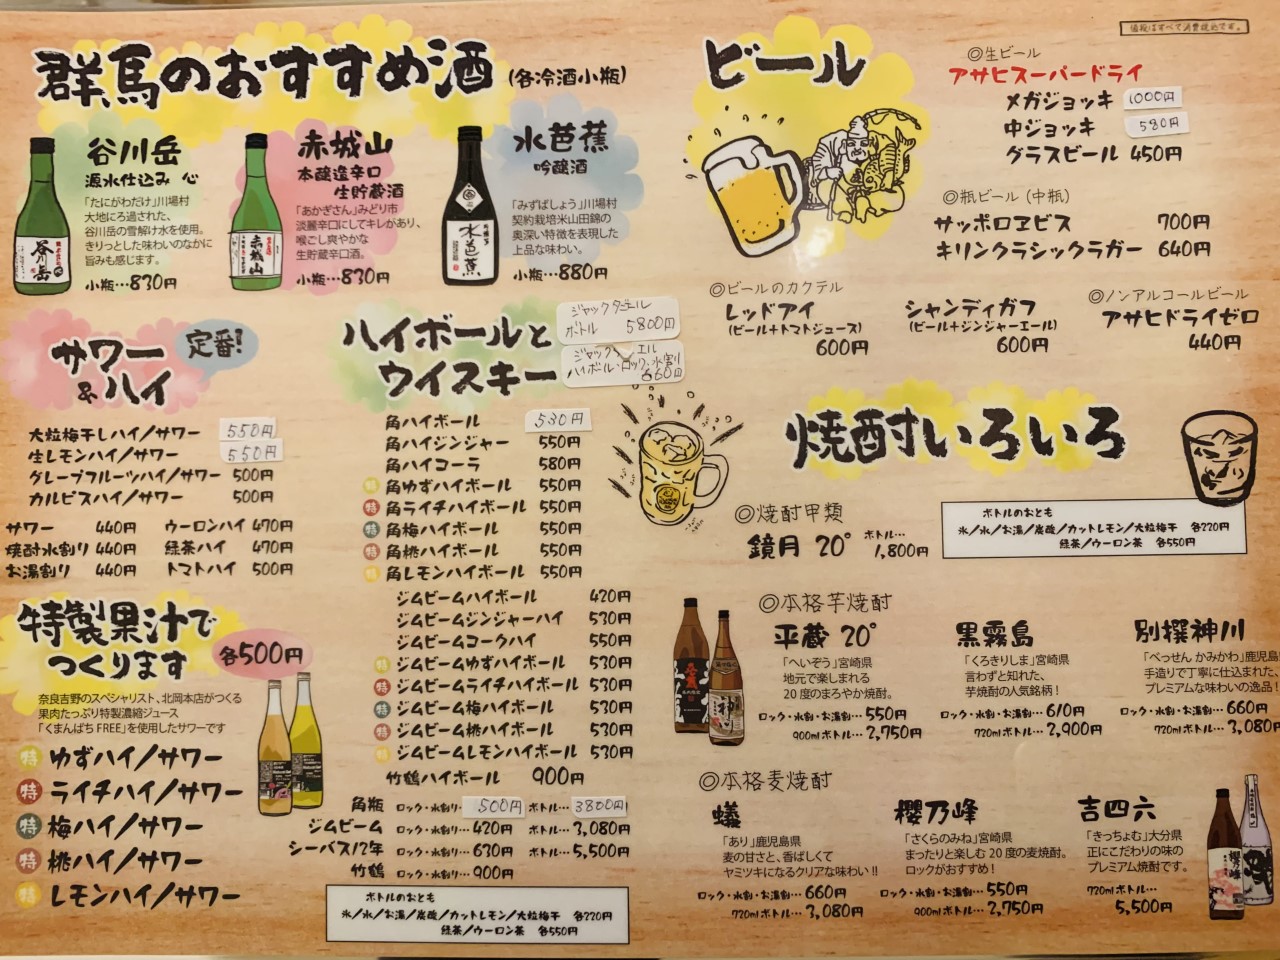 価格はすべて消費税込です。
群馬のおすすめ酒 (各冷酒小瓶)
谷川岳
源水仕込み 心
「たにがわだけ」川場村
大地にろ過された、
谷川岳の雪解け水を使用。
きりっとした味わいのなかに
旨みも感じます。
小瓶…830円
赤城山
本醸造辛口
生貯蔵酒
「あかぎさん」みどり市
淡麗辛口にしてキレがあり、
喉ごし爽やかな
生貯蔵辛口酒。
小瓶…830円
水芭蕉
吟醸酒
「みずばしょう」川場村
契約栽培米山田錦の
奥深い特徴を表現した
上品な味わい。
小瓶…880円
谷川岳
赤城山
水芭蕉
サワー
&ハイ
定番!
大粒梅干しハイ/サワー 550円
生レモンハイ/サワー 550円
グレープフルーツハイ/サワー 500円
カルピスハイ/サワー 500円
サワー 440円
焼酎水割り 440円
お湯割り 440円
ウーロンハイ 470円
緑茶ハイ 470円
トマトハイ 500円
特製果汁で
つくります
各500円
奈良吉野のスペシャリスト、北岡本店がつくる
果肉たっぷり特製濃縮ジュース
「くまんばち FREE」を使用したサワーです
特 ゆずハイ/サワー
特 ライチハイ/サワー
特 梅ハイ/サワー
特 桃ハイ/サワー
特 レモンハイ/サワー
ハイボールと
ウイスキー
ジャックダニエル
ボトル 5800円
ジャック エル
ハイボール・ロック・水割
各660円
角ハイボール 530円
角ハイジンジャー 550円
角ハイコーラ 580円
特 角ゆずハイボール 550円
特 角ライチハイボール 550円
特 角梅ハイボール 550円
特 角桃ハイボール 550円
特 角レモンハイボール 550円
ジムビームハイボール 420円
ジムビームジンジャーハイ 530円
ジムビームコークハイ 550円
特 ジムビームゆずハイボール 530円
特 ジムビームライチハイボール 530円
特 ジムビーム梅ハイボール 530円
特 ジムビーム桃ハイボール 530円
特 ジムビームレモンハイボール 530円
竹鶴ハイボール 900円
角瓶 ロック・水割り… 500円 ボトル… 3800円
ジムビーム ロック・水割り… 420円 ボトル… 3,080円
シーバス12年 ロック・水割り… 630円 ボトル… 5,500円
竹鶴 ロック・水割り… 900円
ボトルのおとも
氷/水/お湯/炭酸/カットレモン/大粒梅干 各220円
緑茶/ウーロン茶 各550円
ビール
◎生ビール
アサヒスーパードライ
メガジョッキ 1000円
中ジョッキ 580円
グラスビール 450円
◎瓶ビール (中瓶)
サッポロヱビス 700円
キリンクラシックラガー 640円
◎ビールのカクテル
レッドアイ
(ビール+トマトジュース)
600円
シャンディガフ
(ビール+ジンジャーエール)
600円
◎ノンアルコールビール
アサヒドライゼロ
440円
焼酎いろいろ
◎焼酎甲類
鏡月 20° ボトル…
1,800円
ボトルのおとも
氷/水/お湯/炭酸/カットレモン/大粒梅干 各220円
緑茶/ウーロン茶 各550円
◎本格芋焼酎
平蔵 20°
「へいぞう」宮崎県
地元で楽しまれる
20度のまろやか焼酎。
ロック・水割・お湯割… 550円
900mlボトル… 2,750円
黒霧島
「くろきりしま」宮崎県
言わずと知れた、
芋焼酎の人気銘柄!
ロック・水割・お湯割… 610円
720mlボトル… 2,900円
別撰神川
「べっせん かみかわ」鹿児島
手造りで丁寧に仕込まれた、
プレミアムな味わいの逸品!
ロック・水割・お湯割… 660円
720mlボトル… 3,080円
◎本格麦焼酎
蟻
「あり」鹿児島県
麦の甘さと、香ばしくて
ヤミツキになるクリアな味わい!!
ロック・水割・お湯割… 660円
720mlボトル… 3,080円
櫻乃峰
「さくらのみね」宮崎県
まったりと楽しむ20度の麦焼酎。
ロックがおすすめ!
ロック・水割・お湯割… 550円
900mlボトル… 2,750円
吉四六
「きっちょむ」大分県
正にこだわりの味の
プレミアム焼酎です。
720mlボトル…
5,500円